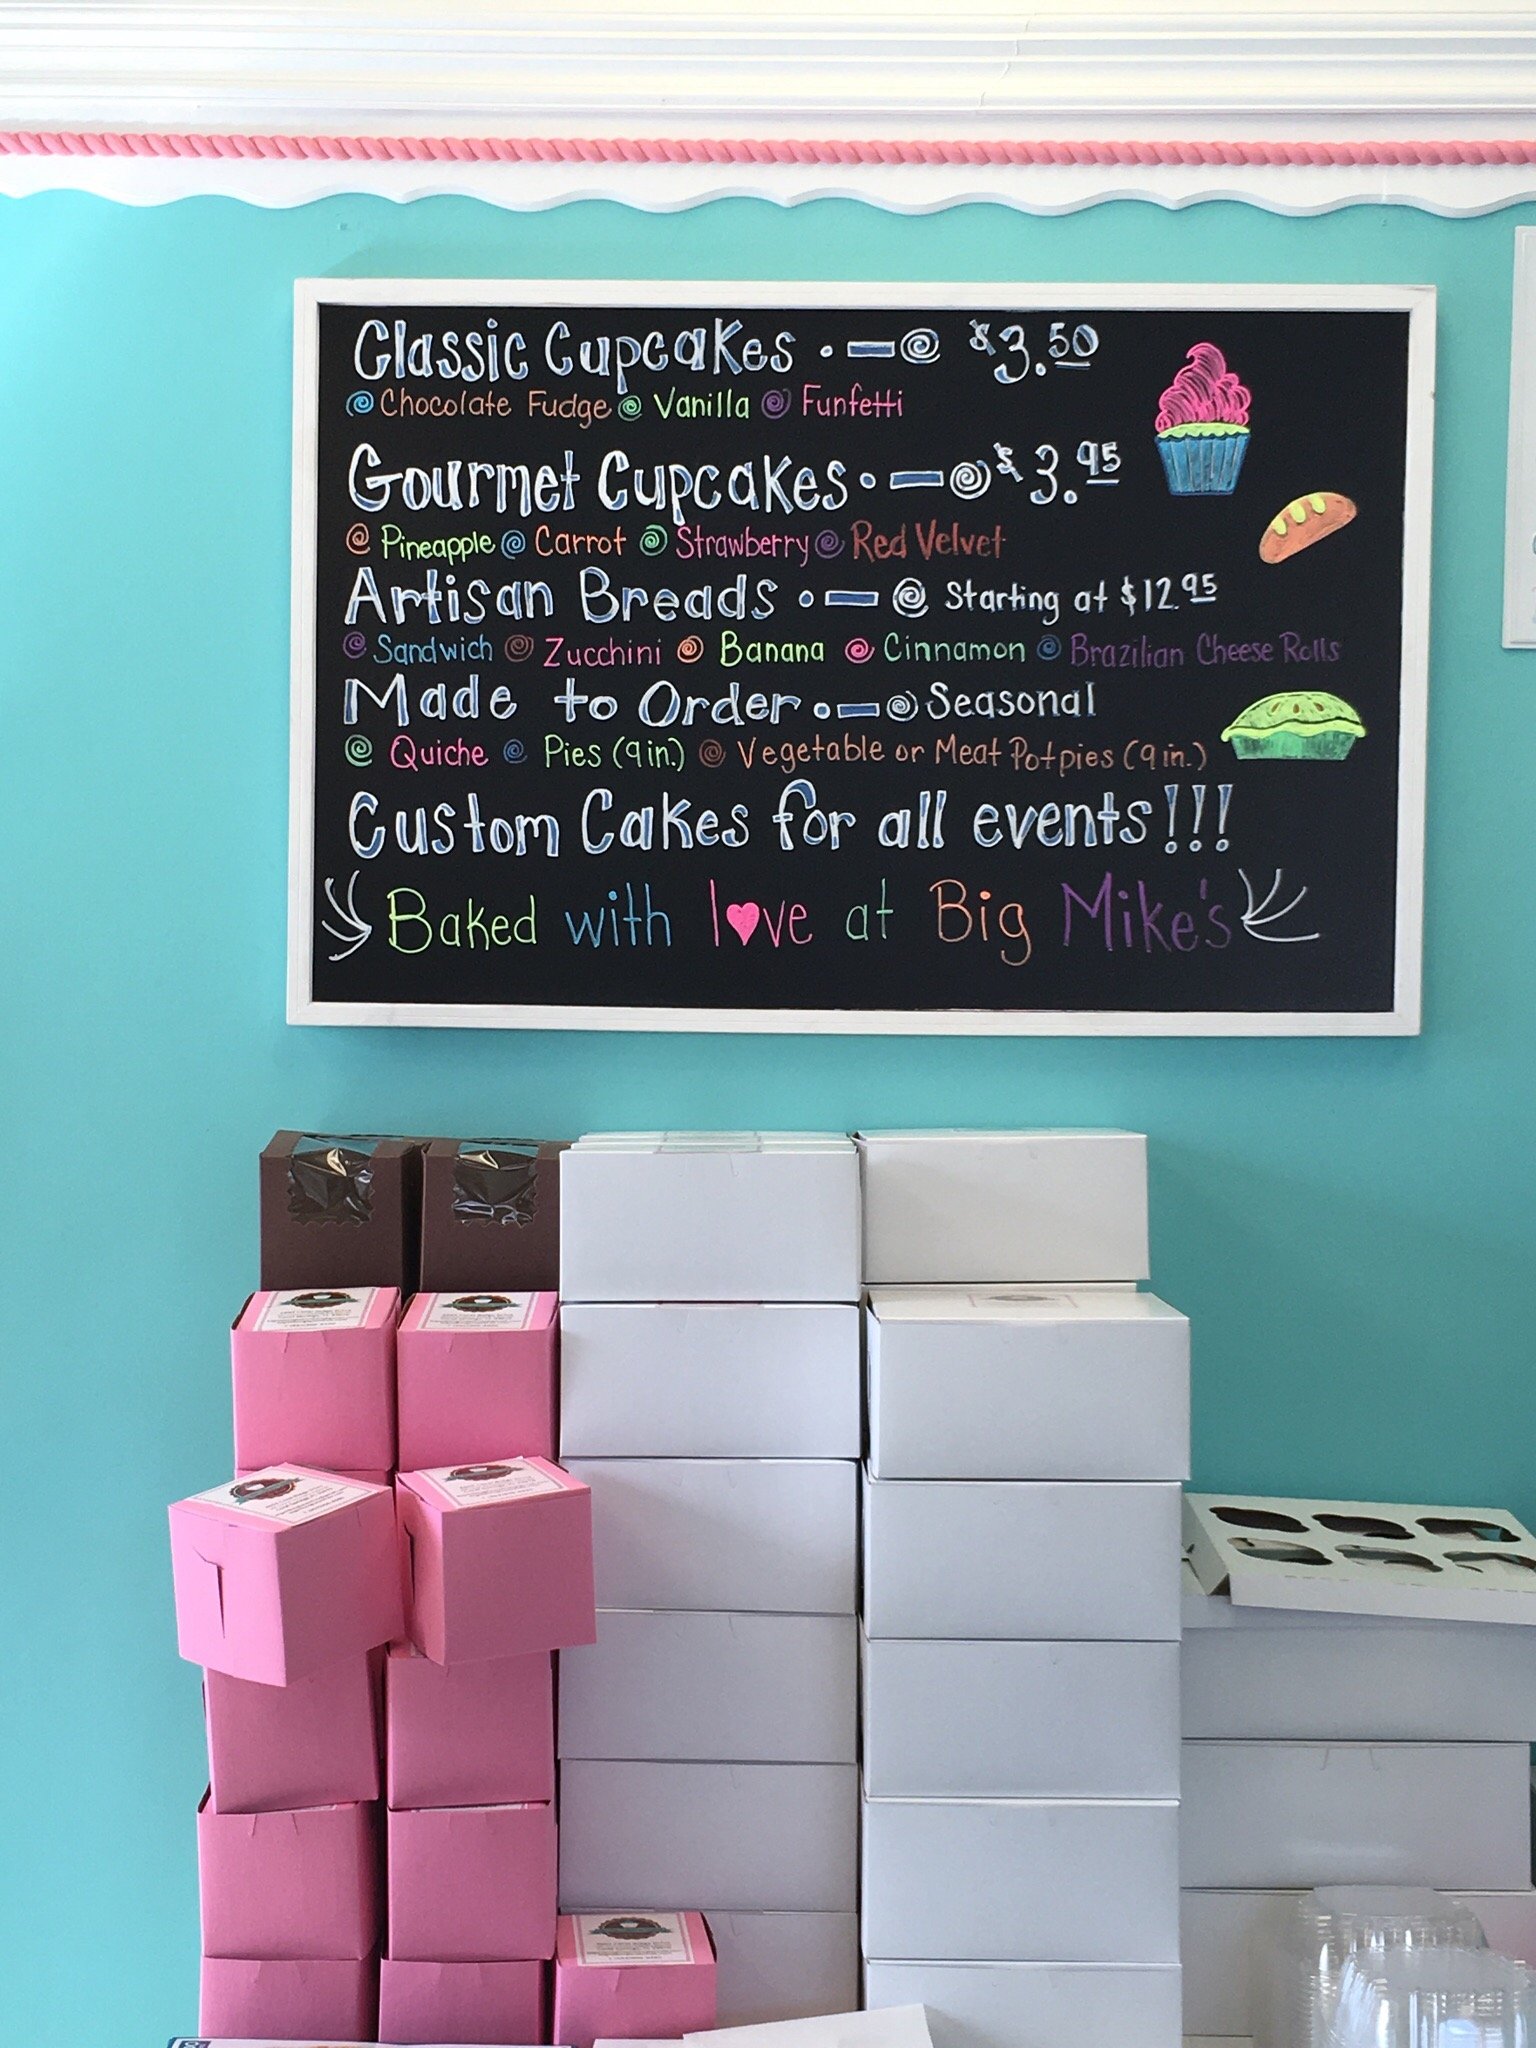 Classic Cupcakes $3.50
Chocolate Fudge Vanilla Funfetti
Gourmet Cupcakes $3.95
Pineapple Carrot Strawberry Red Velvet
Artisan Breads Starting at $12.95
Sandwich Zucchini Banana Cinnamon Brazilian Cheese Rolls
Made to Order Seasonal
Quiche Pies (9in.) Vegetable or Meat Potpies (9in.)
Custom Cakes for all events!!!
Baked with love at Big Mike's